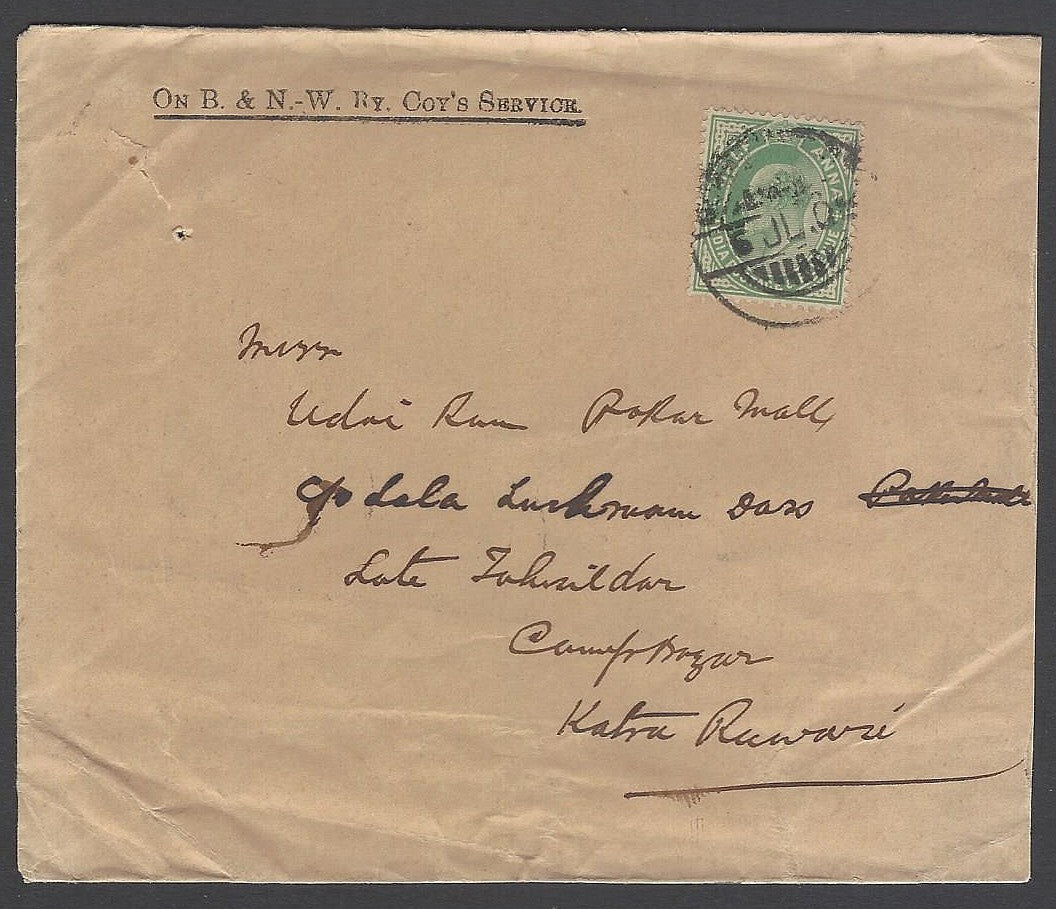 On B. & N.-W. Ry. Coy's Service.
HALF ANNA
6 JL 0
Messrs
Udai Ram Pokar Mall
c/o Lala Luchmam Dass
Late Tahsildar
Camp Bazar
Katra Ruwari